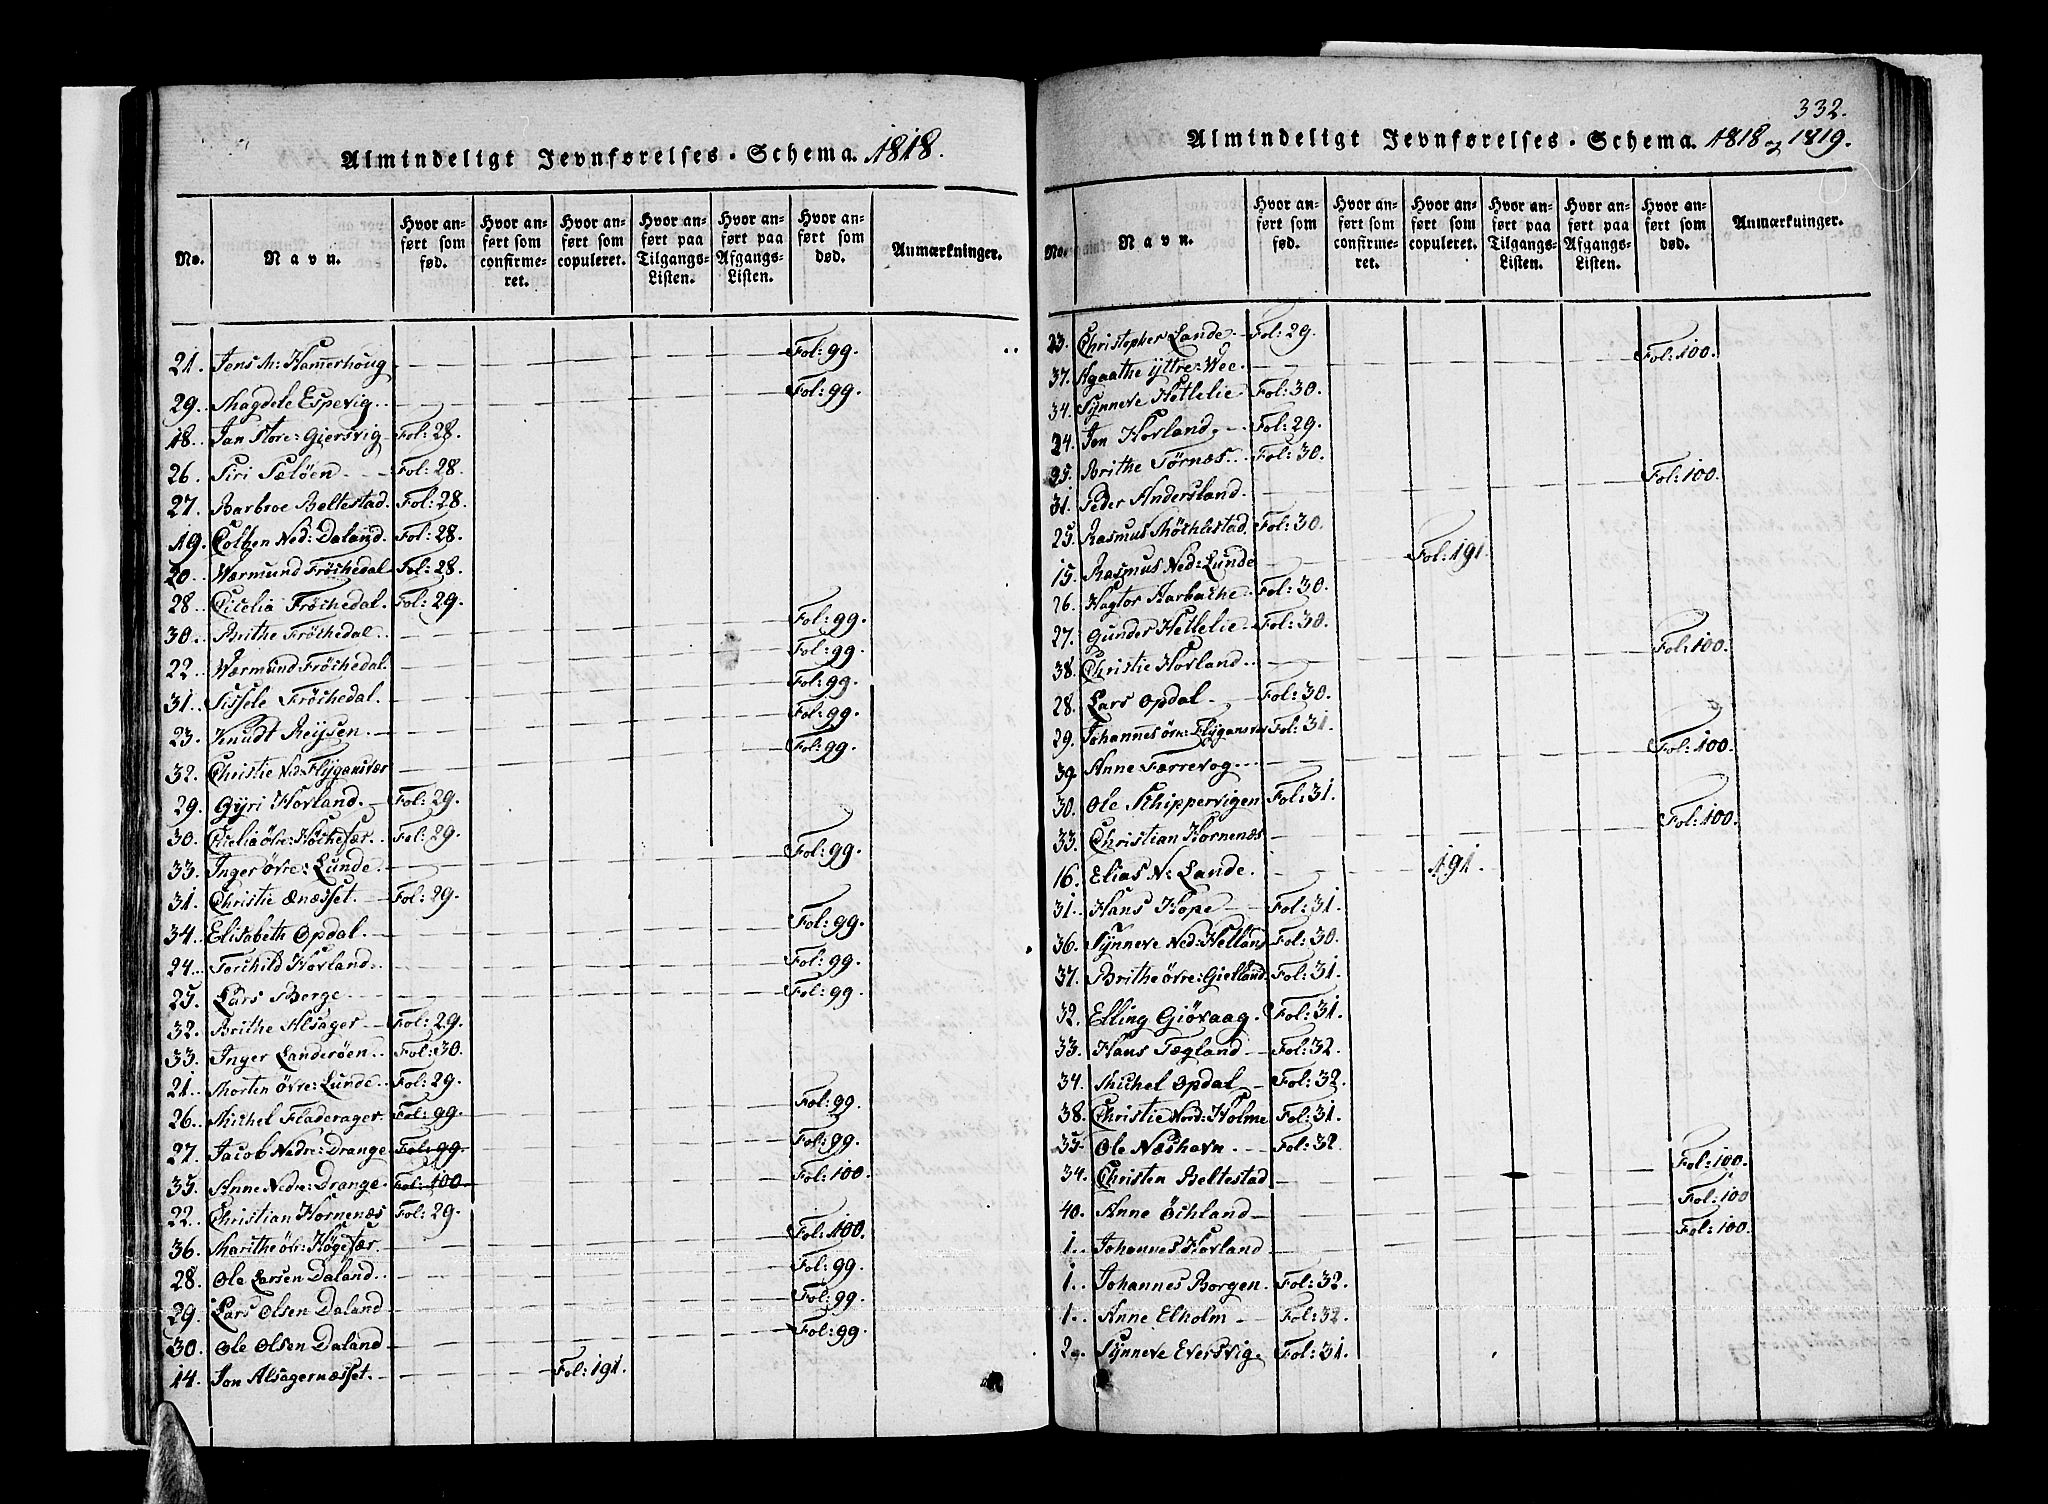 Almindeligt Jevnførelses-Schema. 1818.
No. Navn. Hvor anført som fød. Hvor anført som confirmeret. Hvor anført som copuleret. Hvor anført paa Tilgangs-Listen. Hvor anført paa Afgangs-Listen. Hvor anført som død. Anmærkninger.
21. Jens M: Hamerhoug Fol: 99.
29. Magdele Espevig Fol: 99.
18. Jan Store: Giersvig Fol: 28.
26. Siri Sæløen Fol: 28.
27. Barbroe Beltestad. Fol: 28.
19. Colben Ned: Daland. Fol: 28.
20. Wærmund Fröchedal Fol: 28.
28. Cicelia Fröchedal. Fol: 29.
30. Brithe Fröchedal Fol: 99.
22. Wærmund Fröchedal. Fol: 99.
31. Sissele Fröchedal. Fol: 99.
23. Knudt Reysen. Fol: 99.
32. Christie Ned: Flygansvær Fol: 99.
29. Gyri Hovland. Fol: 29.
30. Cicelia övr: Höchefær. Fol: 29.
33. Inger övre: Lunde. Fol: 99.
31. Christie Ænæsset. Fol: 29.
34. Elisabeth Opdal. Fol: 99.
24. Torchild Hovland. Fol: 99.
25. Lars Berge Fol: 99.
32. Brithe Alsager Fol: 29.
33. Inger Landeröen. Fol: 30.
21. Morten övre: Lunde. Fol: 29.
26. Michel Fladerager. Fol: 99. Fol: 99.
27. Jacob Nedre: Drange Fol: 99. Fol: 99.
35. Anne Nedre: Drange. Fol: 100. Fol: 100.
22. Christian Hornenæs Fol: 29.
36. Marithe öv: Högefær. Fol: 100.
28. Ole Larsen Daland. Fol: 99.
29. Lars Olsen Daland Fol: 99.
30. Ole Olsen Daland Fol: 99.
14. Jon Alsagernæsset. Fol: 191.
332.
Almindeligt Jevnførelses-Schema. 1818 og 1819.
No. Navn. Hvor anført som fød. Hvor anført som confirmeret. Hvor anført som copuleret. Hvor anført paa Tilgangs-Listen. Hvor anført paa Afgangs-Listen. Hvor anført som død. Anmærkninger.
23. Christopher Lande. Fol: 29.
37. Agaathe yttre: Wee. Fol: 100.
34. Synneve Hettelie Fol: 30.
24. Jon Hovland. Fol: 29.
35. Brithe Tørnæs Fol: 30.
31. Peder Andersland. Fol: 100.
25. Rasmus Möchlestad. Fol: 30.
15. Rasmus Ned: Lunde Fol: 191.
26. Hagtor Harbache Fol: 30.
27. Gunder Hettelie Fol: 30.
38. Christie Hovland. Fol: 100.
28. Lars Opdal Fol: 30.
29. Johannes övr: Flygansvær Fol: 31.
39. Anne Færrevog Fol: 100.
30. Ole Schippervigen Fol: 31.
33. Christian Hornenæs Fol: 100.
16. Elias N: Lande. 191.
31. Hans Hope Fol: 31.
36. Synneve Ned: Helland Fol: 30.
37. Brithe övre: Gielland. Fol: 31.
32. Elling Giövaag. Fol: 31.
33. Hans Tægland Fol: 32.
34. Michel Opdal Fol: 32.
38. Christie Nord: Holme Fol: 31.
35. Ole Næshavn Fol: 32.
34. Christen Beltestad Fol: 100.
40. Anne Öchland Fol: 100
1. Johannes Hovland Fol: 100.
1. Johannes Borgen. Fol: 32.
1. Anne Elholm Fol: 32.
2. Synneve Eversvig. Fol: 31.